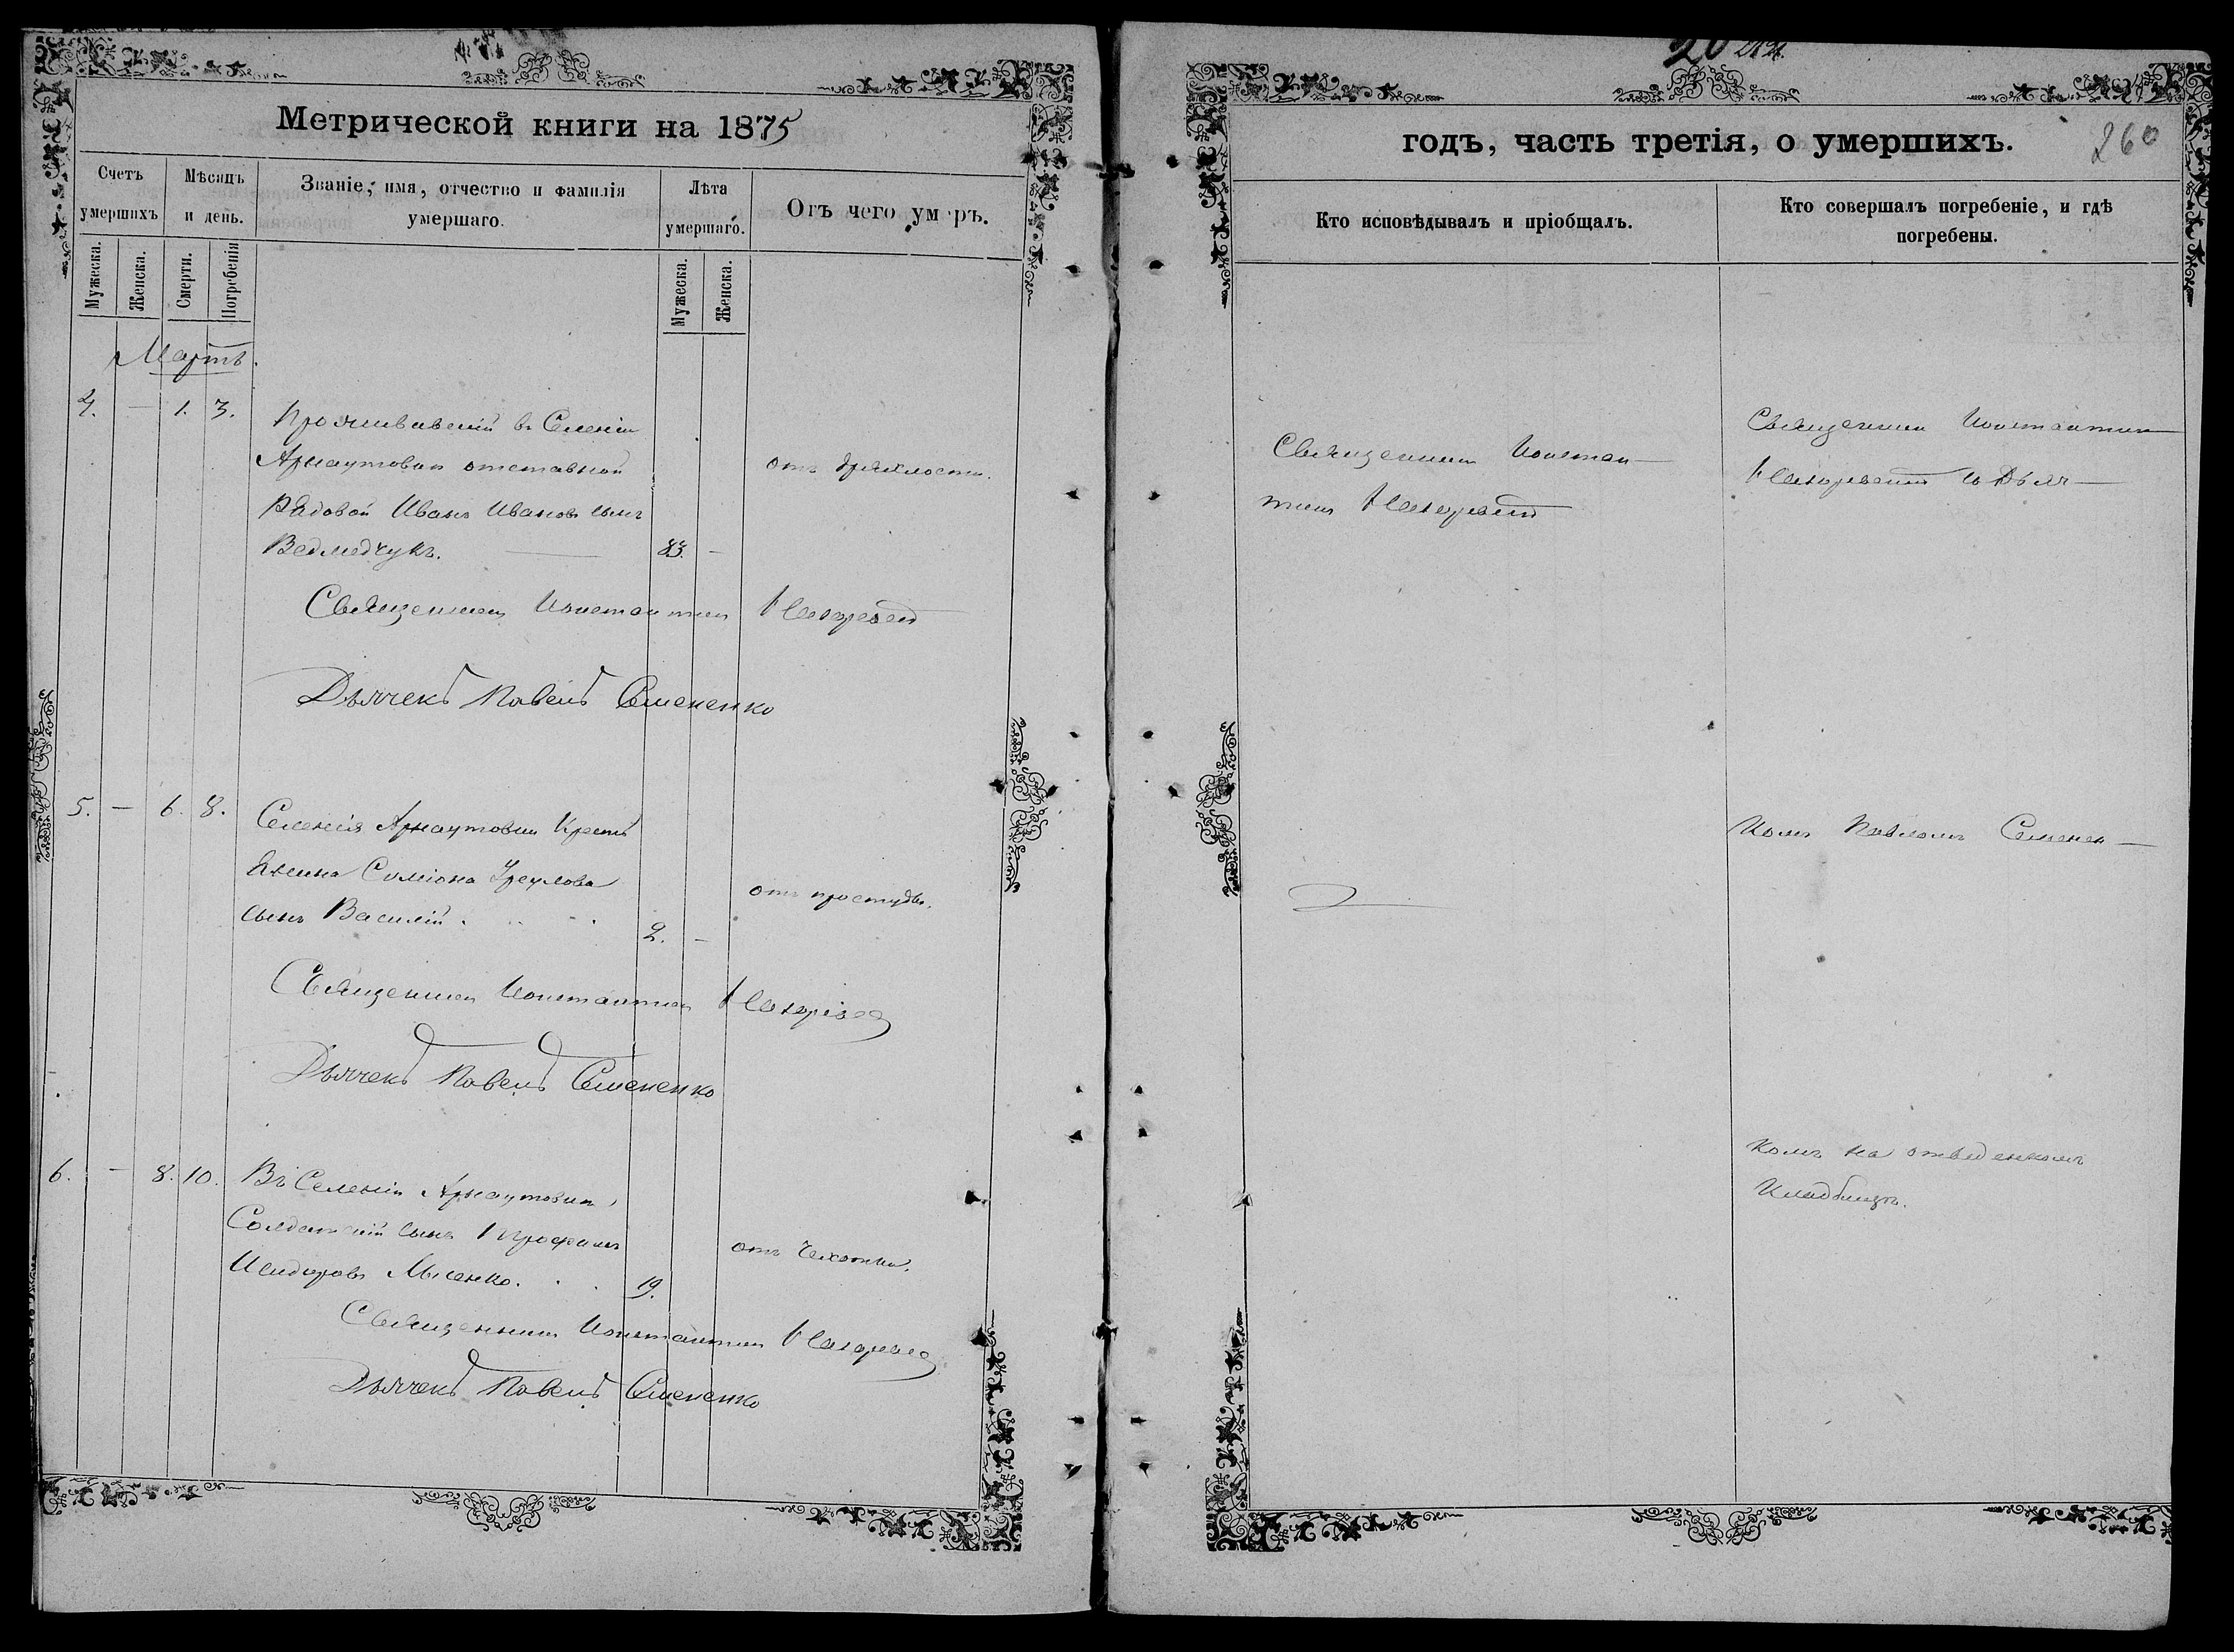 Метрической книги на 1875
Счетъ умершихъ
Мѣсяцъ и день.
Званіе, имя, отчество и фамилія умершаго.
Лѣта умершаго.
Отъ чего умеръ.
Мужеска.
Женска.
Смерти.
Погребенія
Мужеска.
Женска.
Мартъ.
4. — 1. 3.
Проживавшій въ Селеніи
Арнаутовки отставной
Рядовой Иванъ Ивановъ сынъ
Ведмедчукъ. — 83. —
отъ дряхлости.
Священникъ Константин
Дьячекъ Павелъ Семененко
5. — 6. 8.
Селенія Арнаутовки Крестъ
янина Симіона
сынъ Василій . . . 2. —
отъ простуды.
Священникъ Константин
Дьячекъ Павелъ Семененко
6. — 8. 10.
Въ Селеніи Арнаутовки
Солдатскій сынъ Трофимъ
Исидоровъ Мисенко. . . 19.
отъ Чахотки.
Священникъ Константин
Дьячекъ Павелъ Семененко
годъ, часть третія, о умершихъ.
260
Кто исповѣдывалъ и пріобщалъ.
Кто совершалъ погребеніе, и гдѣ погребены.
Священникъ Констан—
тин
Священникъ Константин
съ Дьяч—
комъ Павломъ Семенен—
комъ на отведенномъ
Кладбищѣ.